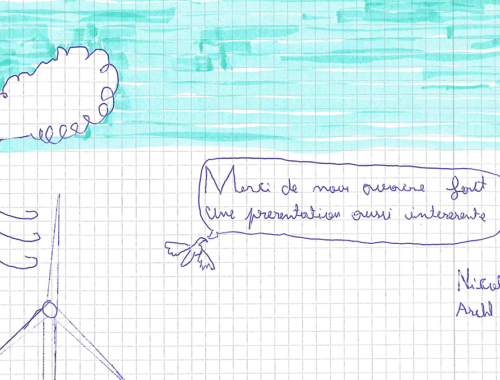 Merci de nous avoire fait
une presentation aussi interesente
Nicol
Archl